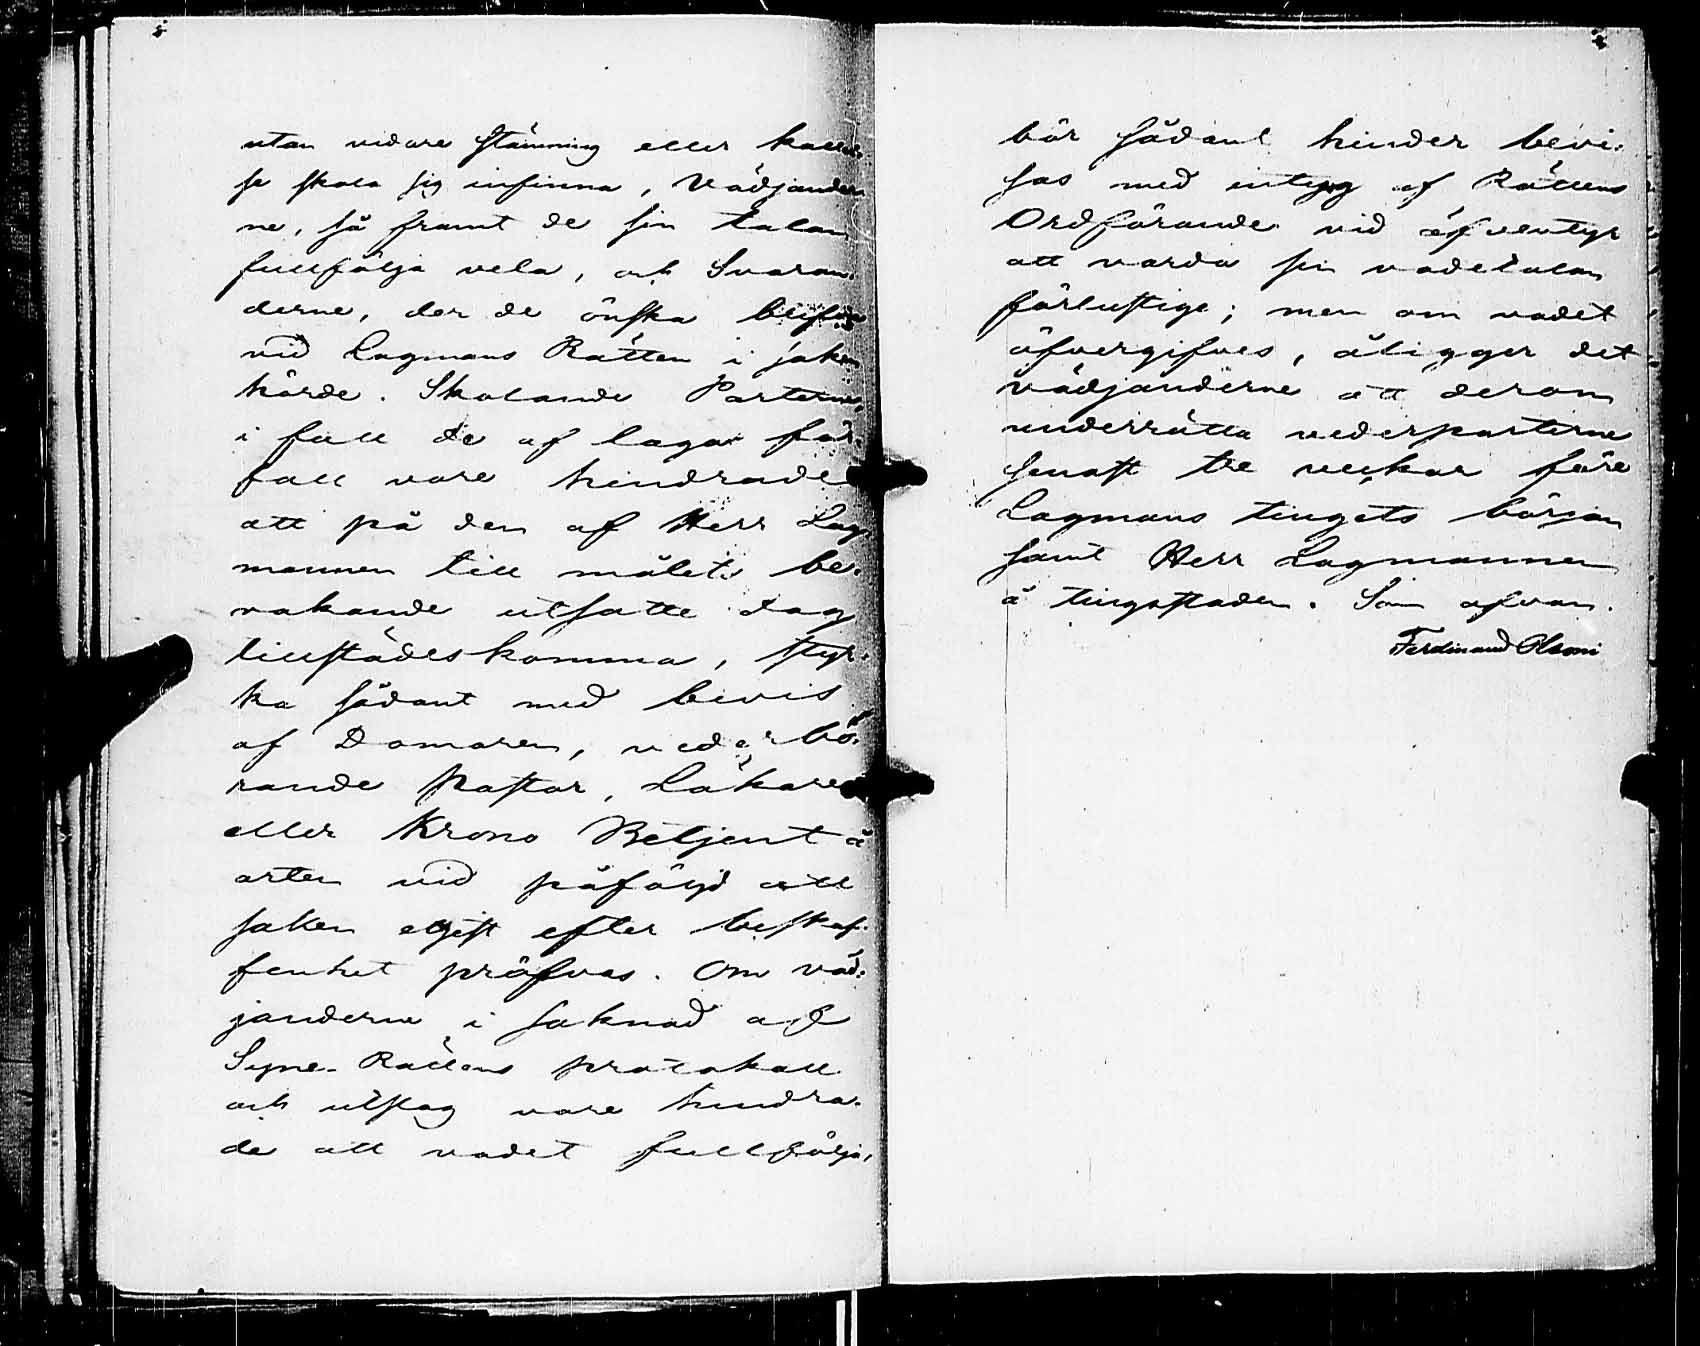 utan vidare stämning eller kallel-
se skola sig infinna, Vädjander-
ne, så framt de sin talan
fullfölja vela, och Svaran-
derne, der de önska blifva
vid Lagmans Rätten i saken
hörde. Skolande Parterne,
i fall de af laga för-
fall vore hindrade
att på den af Herr Lag
mannen till målets be-
vakande utsatte dag
tillstädeskomma, styr-
ka sådant med bevis
af Domaren, vederbö-
rande Pastor, Läkare
eller Krono Betjent å
orten vid påföljd att
saken eljest efter beskaf-
fenhet pröfvas. Om väd-
janderne i saknad af
Syne-Rättens protokoll
och utslag vore hindra-
de att vadet fullfölja,
bör sådant hinder bevi-
sas med intyg af Rättens
Ordförande vid äfventyr
att varda sin vadetalan
förlustige; men om vadet
öfvergifves, åligger det
vädjanderne att derom
underrätta vederparterne
senast tre veckor före
Lagmans tingets början
samt Herr Lagmannen
å tingsstaden. Som ofvan.
Ferdinand